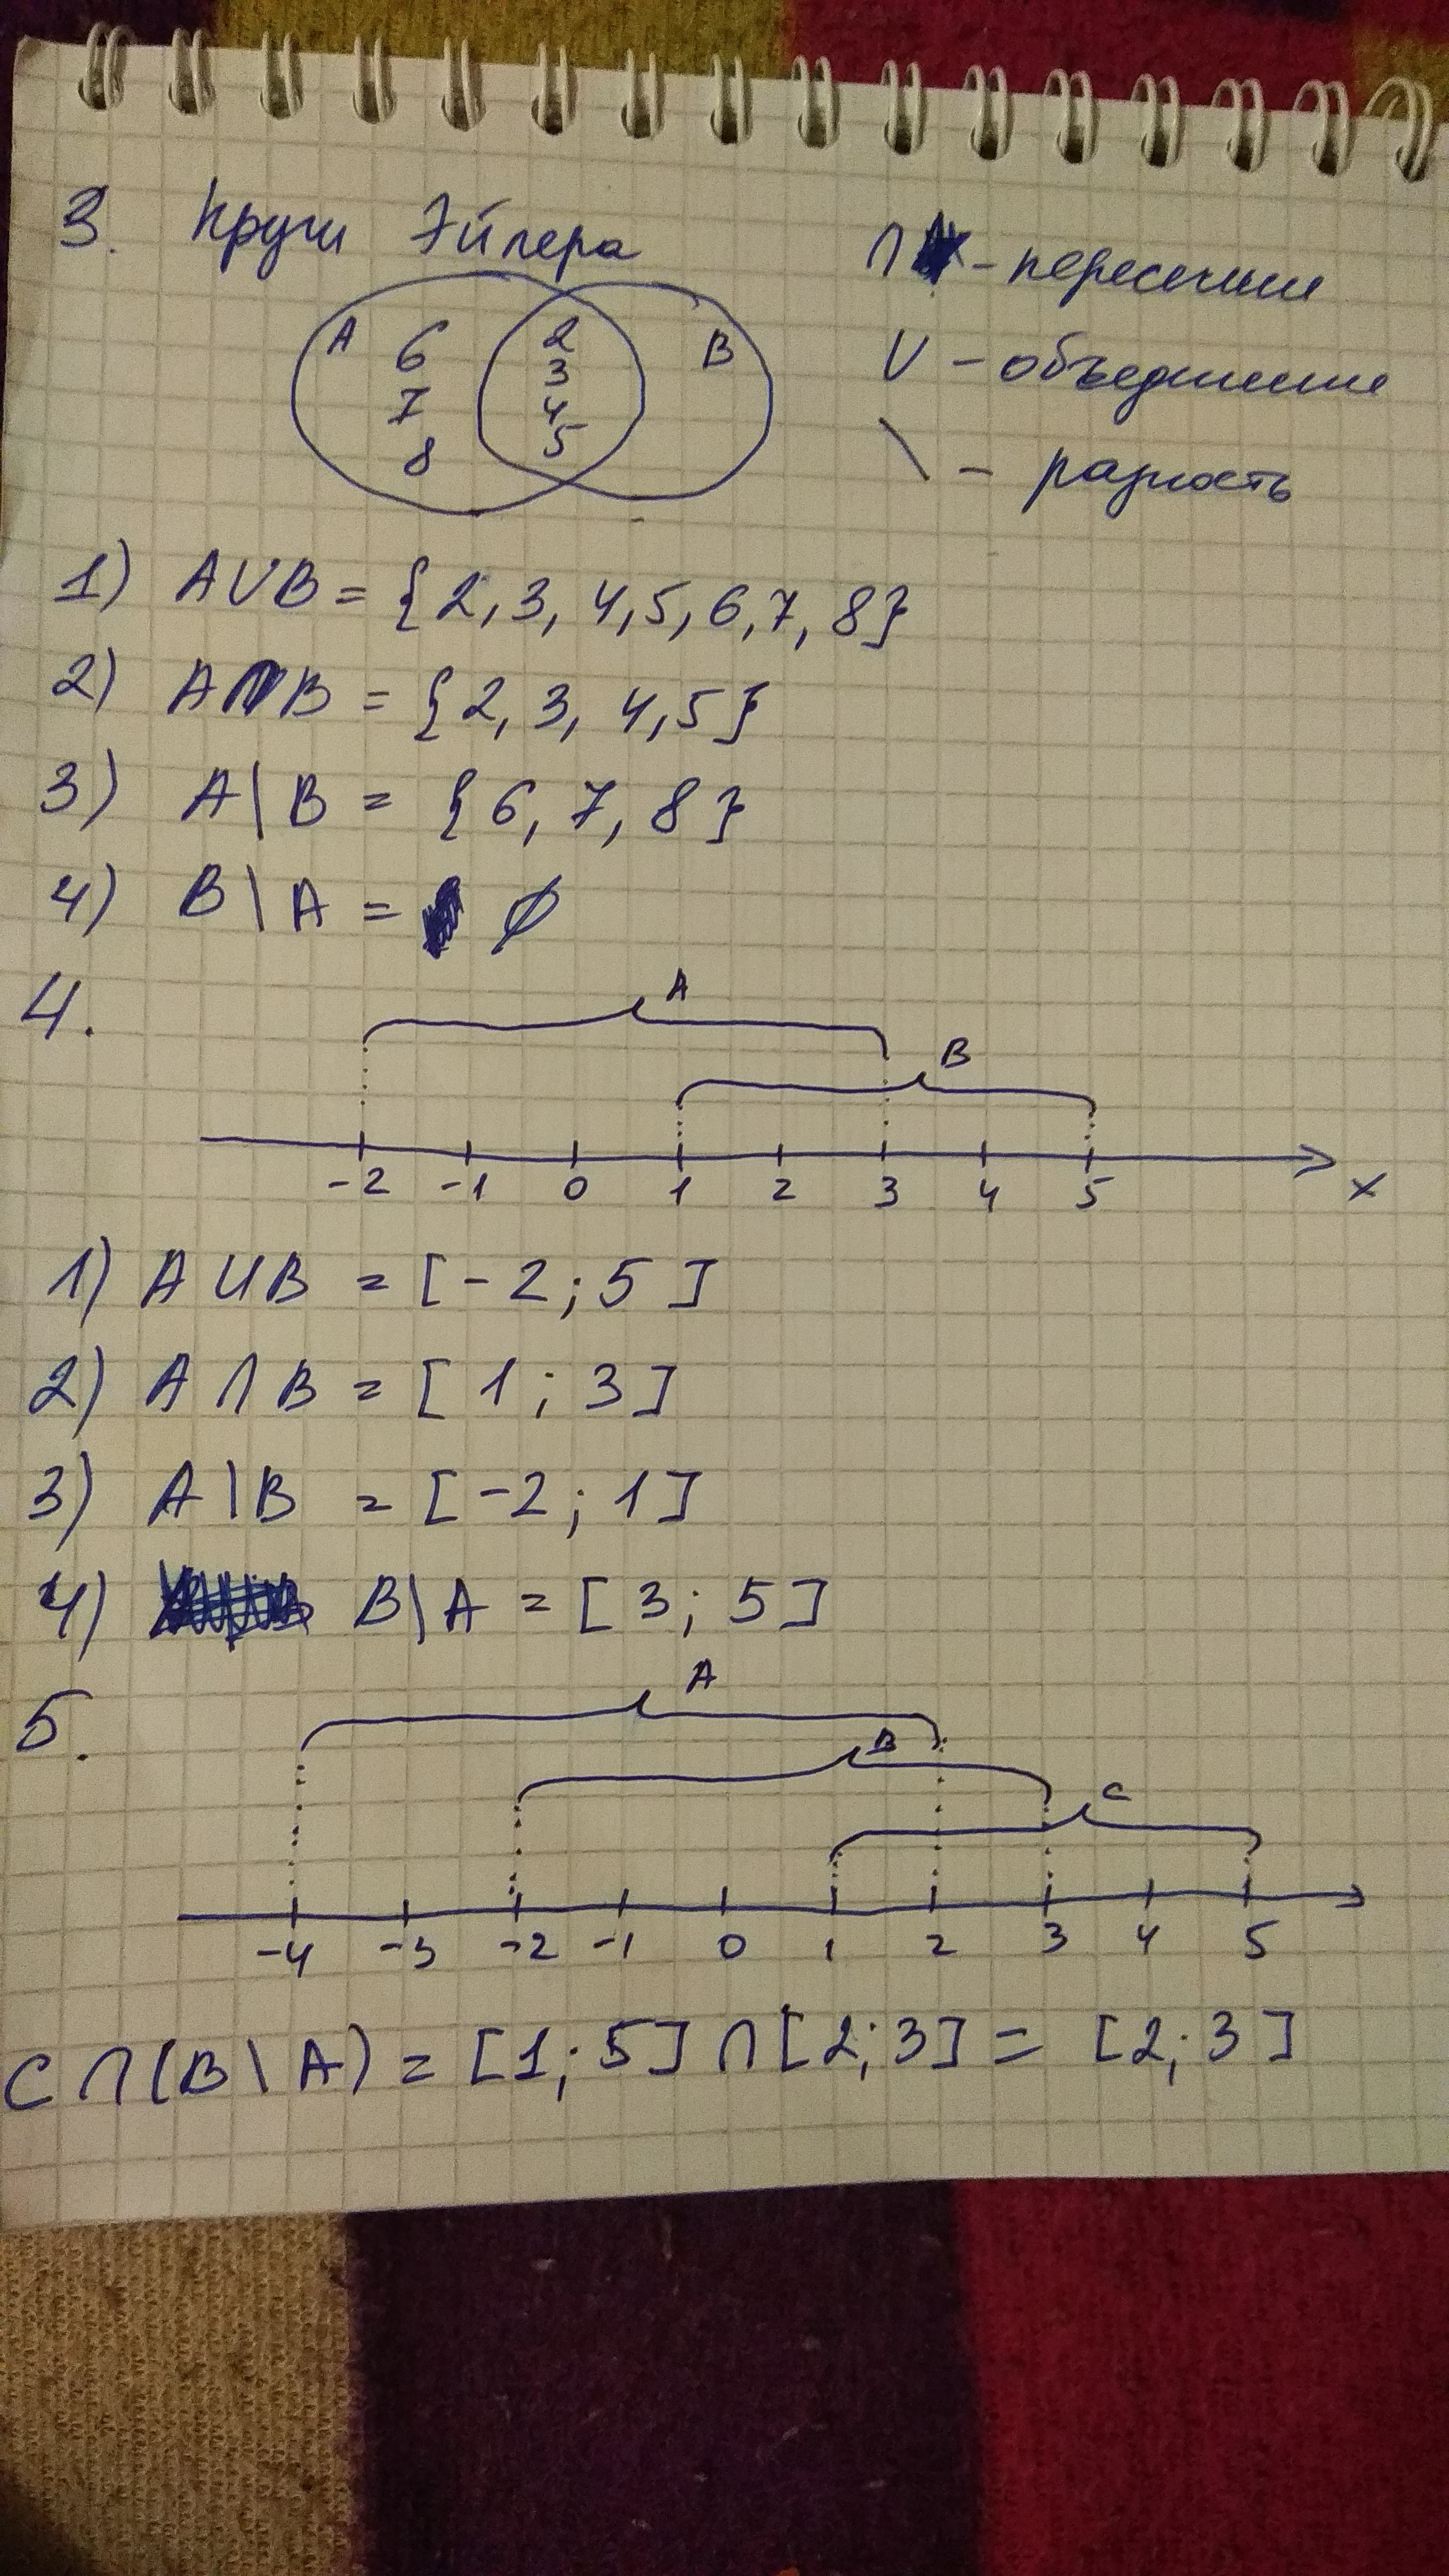 3. Круги Эйлера
∩ - пересечение
∪ - объединение
\ - разность
A 6 7 8
2 3 4 5
B
1) A∪B = {2, 3, 4, 5, 6, 7, 8}
2) A∩B = {2, 3, 4, 5}
3) A\B = {6, 7, 8}
4) B\A = ∅
4.
A
B
-2 -1 0 1 2 3 4 5 x
1) A∪B = [-2; 5]
2) A∩B = [1; 3]
3) A\B = [-2; 1]
4) B\A = [3; 5]
5.
A
B
C
-4 -3 -2 -1 0 1 2 3 4 5
C∩(B\A) = [1; 5]∩[2; 3] = [2; 3]